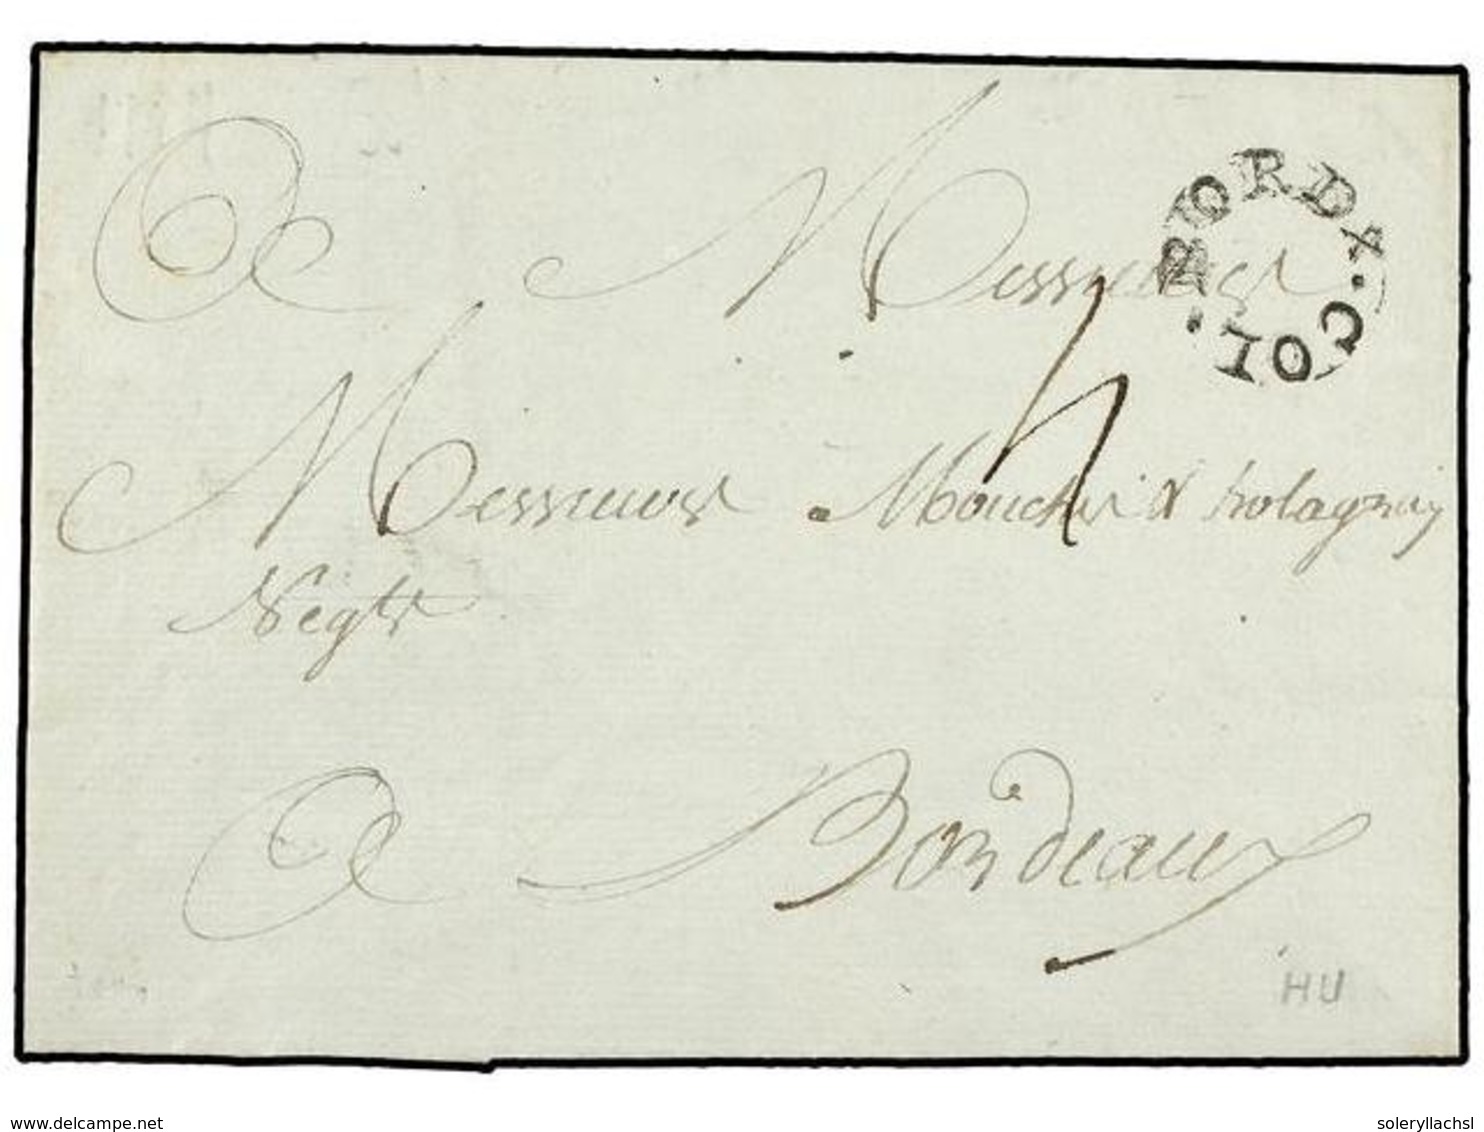 A Messieurs
BORDx. COL.
Messieurs Mouchés &
Negts
A Bordeaux
HU
www.delcampe.net
soleryllachsl